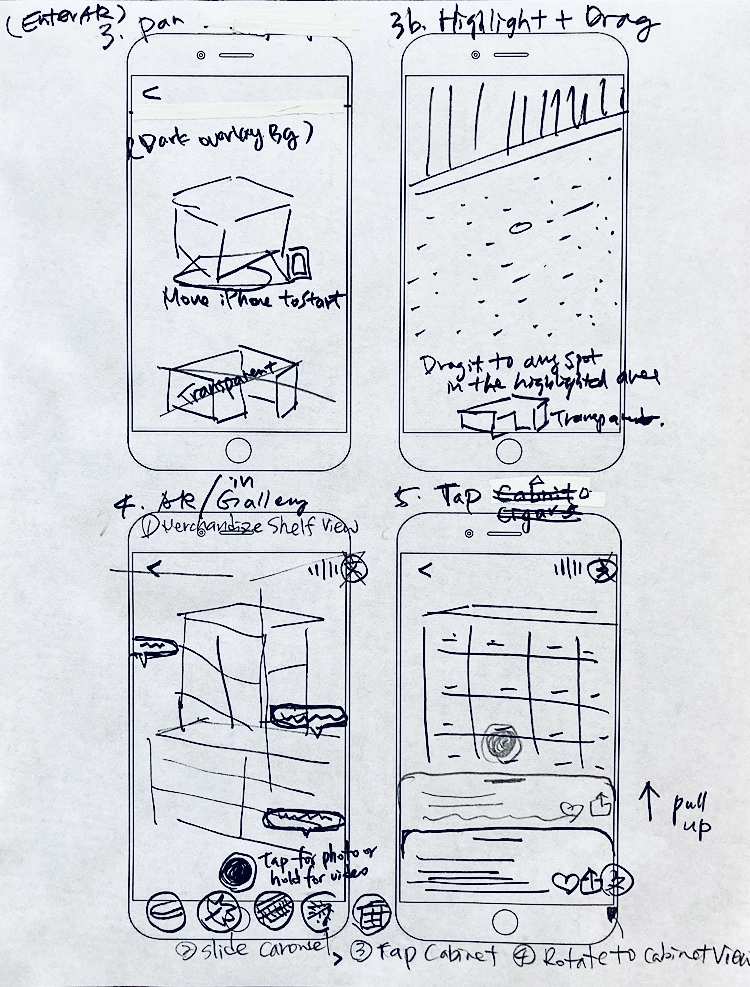 (Enter AR)
3. Pan
(Dark overlay Bg)
Move iPhone to start
Transparent
3b. Highlight + Drag
Drag it to any spot
in the highlighted area
Transparent.
4. AR / in Gallery
① Merchandize Shelf View
Tap for photo or
hold for video
② Slide Carousel, ③ Tap Cabinet ④ Rotate to Cabinet View
5. Tap
Cigars
pull
up